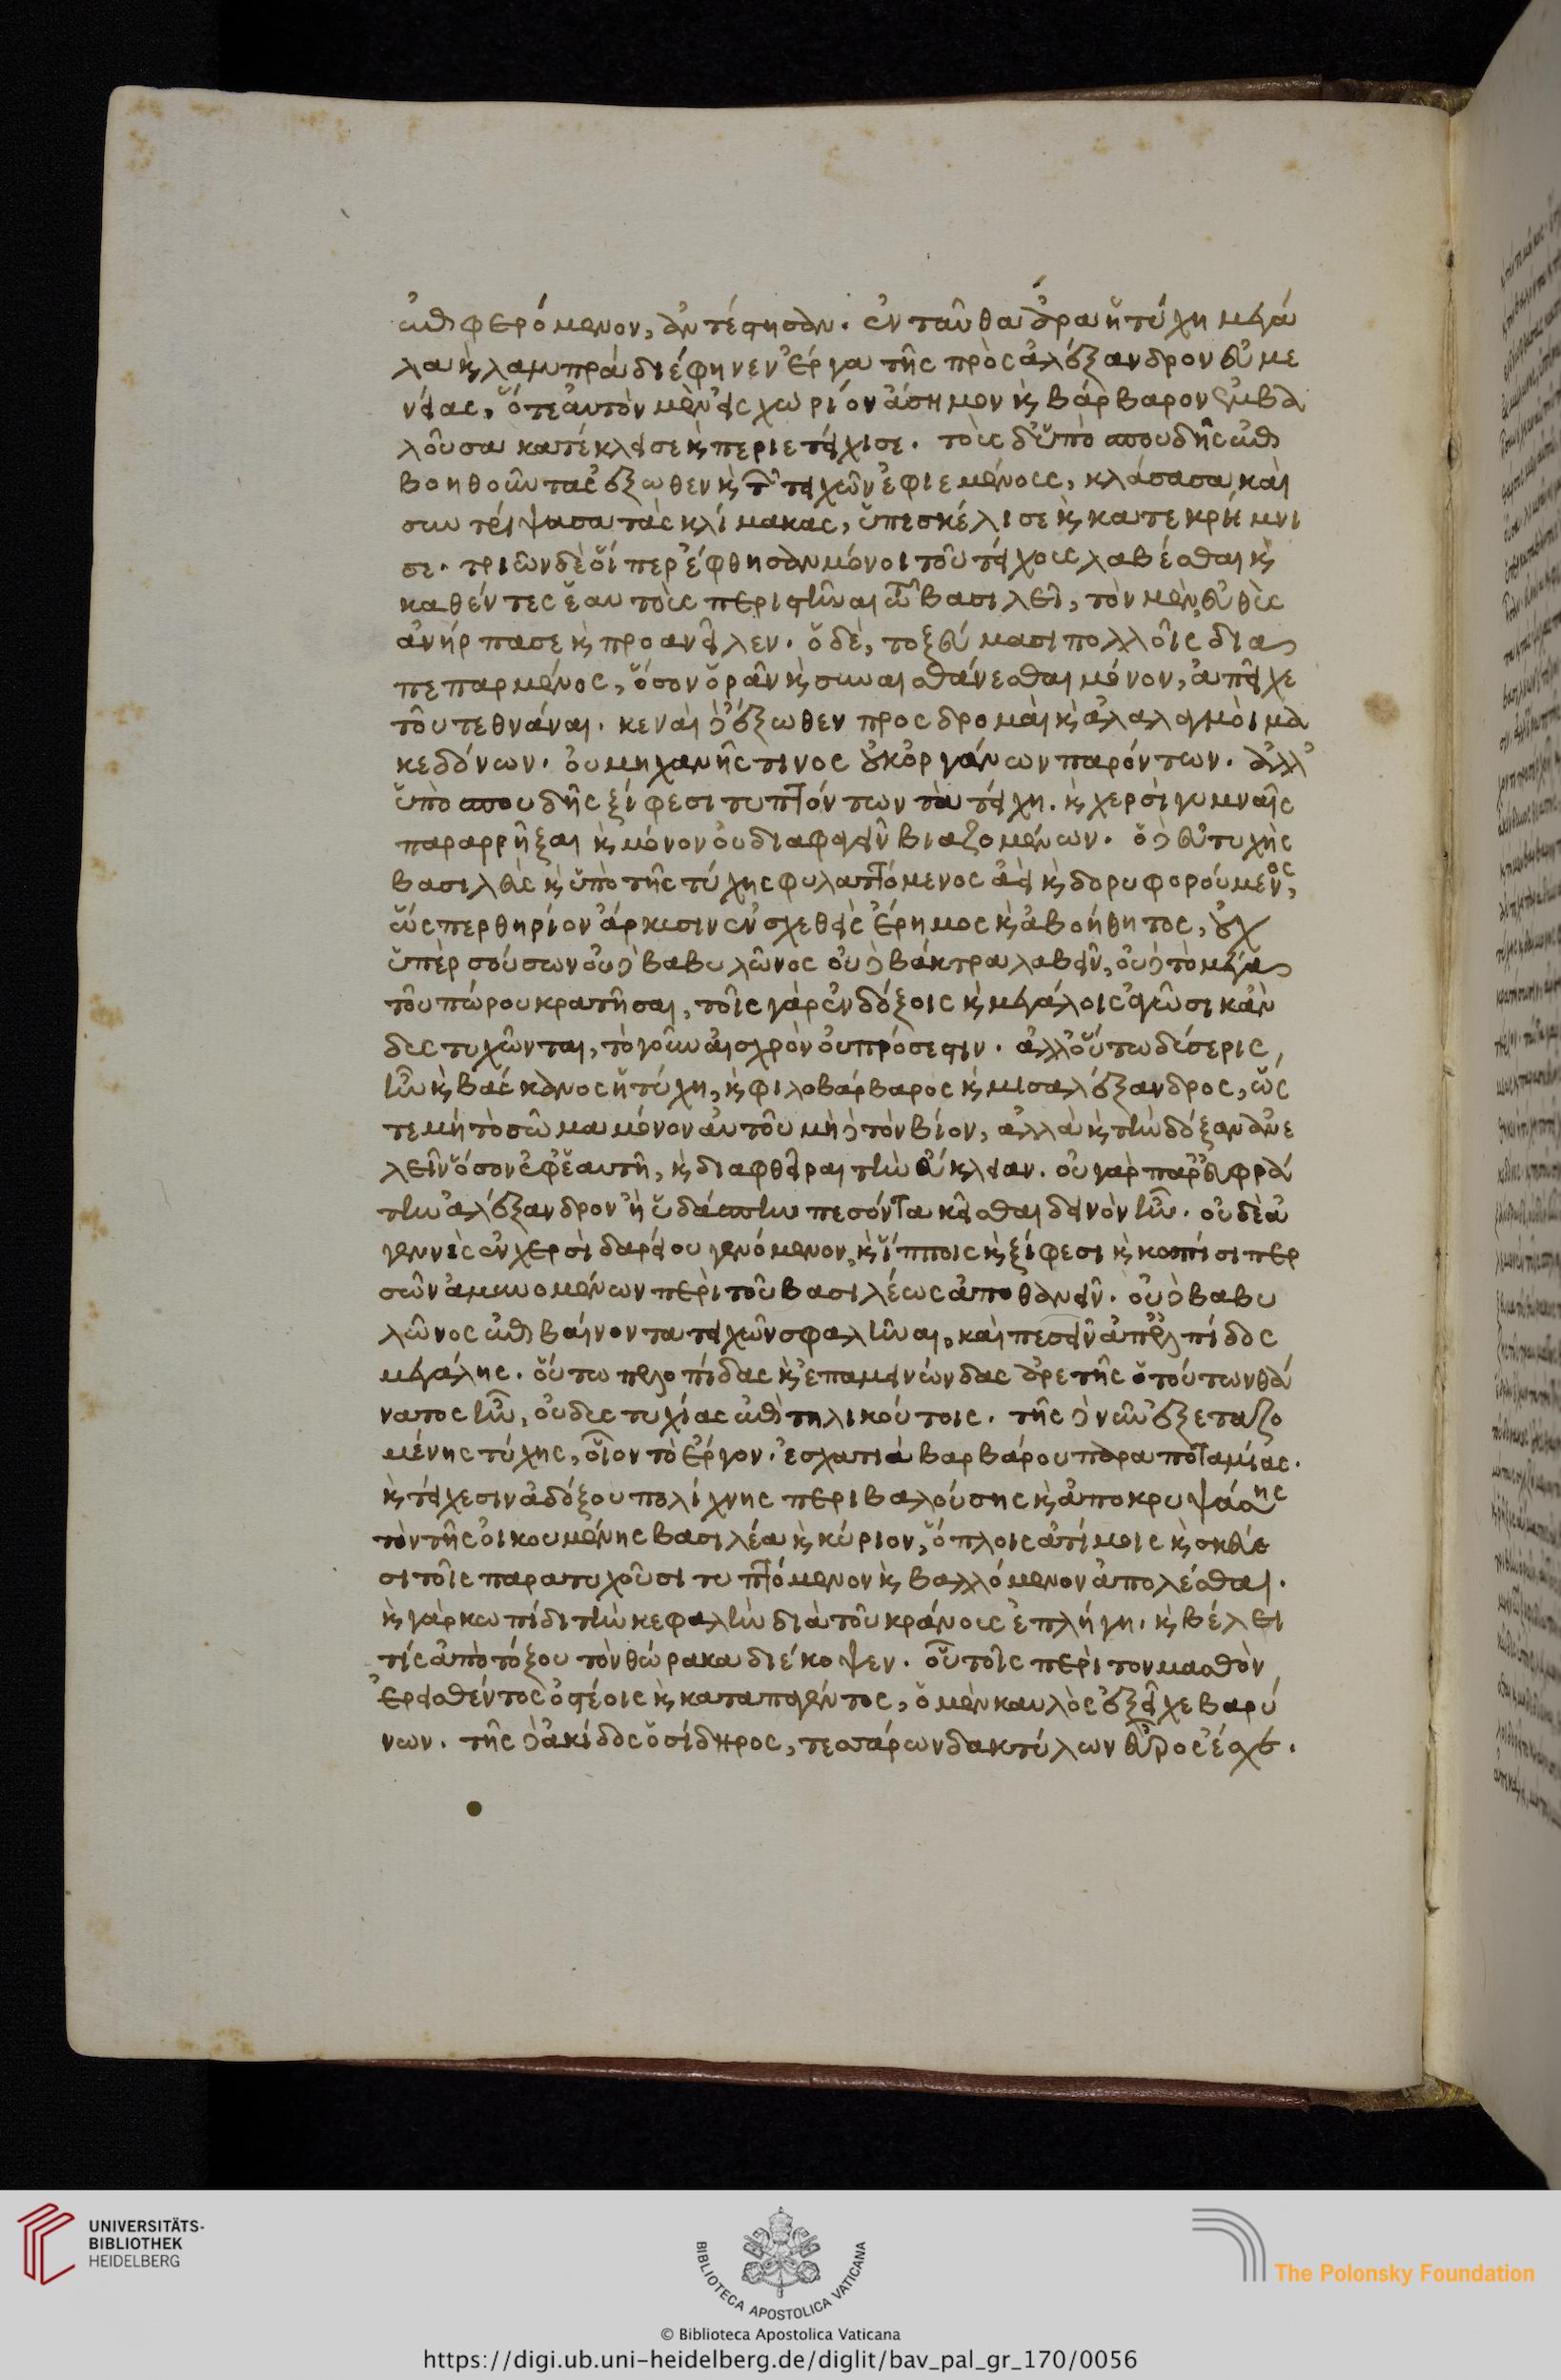 ἐπιφερόμενον, ἀντέστησαν. ἐνταῦθα ἄρα ἡ τύχη μεγά
λα καὶ λαμπρὰ διέφηνεν ἔργα τῆς πρὸς ἀλέξανδρον εὐμε
νείας, ὅτε αὐτὸν μὲν εἰς χωρίον ἄσημον καὶ βάρβαρον ἐμβα
λοῦσα κατέκλεισε καὶ περιετείχισε. τοὺς δ' ὑπὸ σπουδῆς ἐπι
βοηθοῦντας ἔξωθεν καὶ τῶν τειχῶν ἐφιεμένους, κλάσασα καὶ
συντρίψασα τὰς κλίμακας, ὑπεσκέλισε καὶ κατεκρήμνι
σε. τριῶν δὲ οἵπερ ἔφθησαν μόνοι τοῦ τείχους λαβέσθαι καὶ
καθέντες ἑαυτοὺς περιστῆναι τῷ βασιλεῖ, τὸν μὲν εὐθὺς
ἀνήρπασε καὶ προανεῖλεν. ὁ δὲ, τοξεύμασι πολλοῖς δια
πεπαρμένος, ὅσον ὁρᾶν καὶ συναισθάνεσθαι μόνον, ἀπεῖχε
τοῦ τεθνάναι. κεναὶ δὲ ἔξωθεν προσδρομαὶ καὶ ἀλαλαγμοὶ μα
κεδόνων. οὐ μηχανῆς τινος οὐκ ὀργάνων παρόντων. ἀλλ'
ὑπὸ σπουδῆς ξίφεσι τυπτόντων τὰ τείχη. καὶ χερσὶ γυμναῖς
παραρρῆξαι καὶ μόνον οὐ διαφαγεῖν βιαζομένων. ὁ δὲ εὐτυχὴς
βασιλεὺς καὶ ὑπὸ τῆς τύχης φυλαττόμενος ἀεὶ καὶ δορυφορούμενος,
ὥσπερ θηρίον ἄρκυσιν ἐνσχεθεὶς ἔρημος καὶ ἀβοήθητος, οὐχ
ὑπὲρ σούσων οὐδὲ βαβυλῶνος οὐδὲ βάκτρα λαβεῖν, οὐδὲ τὸ μέγα
τοῦ πώρου κρατῆσαι, τοῖς γὰρ ἐνδόξοις καὶ μεγάλοις ἀγῶσι κἂν
δυστυχῶνται, τὸ γοῦν αἰσχρὸν οὐ πρόσεστιν. ἀλλ' οὕτω δύσερις
ἦν καὶ βάσκανος ἡ τύχη, καὶ φιλοβάρβαρος καὶ μισαλέξανδρος, ὥς
τε μὴ τὸ σῶμα μόνον αὐτοῦ μηδὲ τὸν βίον, ἀλλὰ καὶ τὴν δόξαν ἀνε
λεῖν ὅσον ἐφ' ἑαυτῇ, καὶ διαφθεῖραι τὴν εὔκλειαν. οὐ γὰρ παρ' εὐφρά
την ἀλέξανδρον ἢ ὑδάσπην πεσόντα κεῖσθαι δεινὸν ἦν. οὐδὲ ἀ
γεννὲς ἐν χερσὶ δαρείου γενόμενον, καὶ ἵπποις καὶ ξίφεσι καὶ κοπίσι περ
σῶν ἀμυνομένων περὶ τοῦ βασιλέως ἀποθανεῖν. οὐδὲ βαβυ
λῶνος ἐπιβαίνοντα τειχῶν σφαλῆναι, καὶ πεσεῖν ἀπ' ἐλπίδος
μεγάλης. οὕτω πελοπίδας καὶ ἐπαμεινώνδας ἀρετῆς ὁ τούτων θά
νατος ἦν, οὐ δυστυχίας ἐπὶ τηλικούτοις. τῆς δὲ νῦν ἐξεταζο
μένης τύχης, οἷον τὸ ἔργον. ἐσχατιὰ βαρβάρου παραποταμίας.
καὶ τείχεσιν ἀδόξου πολίχνης περιβαλούσης καὶ ἀποκρυψάσης
τὸν τῆς οἰκουμένης βασιλέα καὶ κύριον, ὅπλοις ἀτίμοις καὶ σκεύε
σι τοῖς παρατυχοῦσι τυπτόμενον καὶ βαλλόμενον ἀπολέσθαι.
καὶ γὰρ κωπίδι τὴν κεφαλὴν διὰ τοῦ κράνους ἐπλήγη. καὶ βέλει
τίς ἀπὸ τόξου τὸν θώρακα διέκοψεν. οὗ τοῖς περὶ τὸν μασθὸν
ἐρεισθέντος ὀστέοις καὶ καταπαγέντος, ὁ μὲν καυλὸς ἐξεῖχε βαρύ
νων. τῆς δὲ ἀκίδος ὁ σίδηρος, τεσσάρων δακτύλων εὖρος ἔσχε.
UNIVERSITÄTS-
BIBLIOTHEK
HEIDELBERG
BIBLIOTECA APOSTOLICA VATICANA
The Polonsky Foundation
© Biblioteca Apostolica Vaticana
https://digi.ub.uni-heidelberg.de/diglit/bav_pal_gr_170/0056